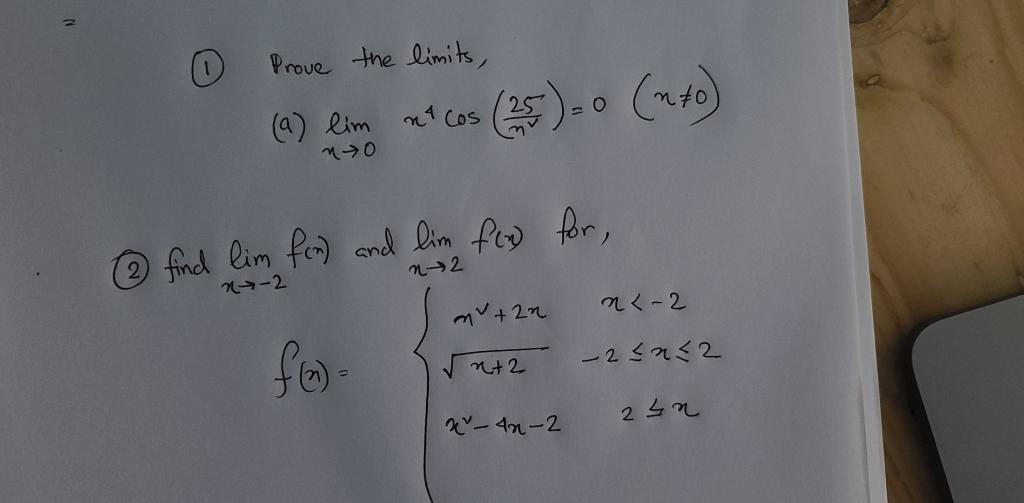 =
① Prove the limits,
(a) lim x→0 x⁴ cos (25/x²) = 0 (x≠0)
② find lim x→-2 f(x) and lim x→2 f(x) for,
f(x) = { x² + 2x x < -2
√x+2 -2 ≤ x ≤ 2
x² - 4x - 2 2 ≤ x